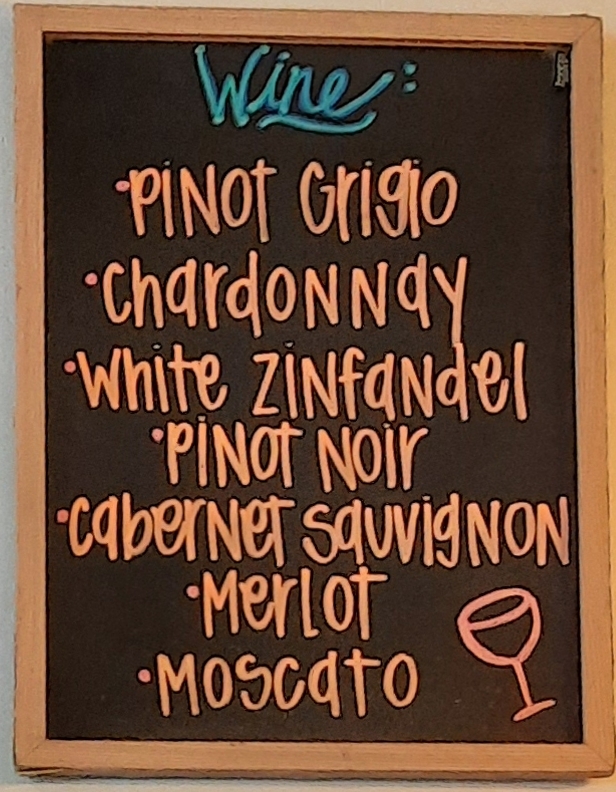 Wine:
•Pinot Grigio
•Chardonnay
•White Zinfandel
•Pinot Noir
•Cabernet Squvignon
•Merlot
•Moscato